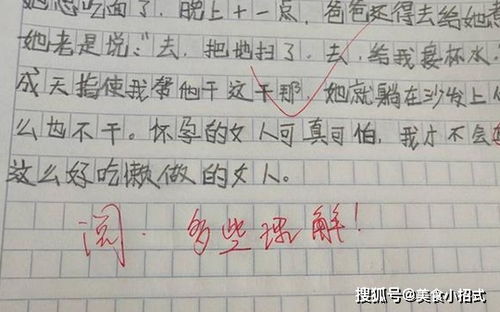 她想吃面了，晚上十一点，爸爸还得去给她
她老是说："去，把地扫了，去，给我接杯水。
成天指使我帮他干这干那，她就躺在沙发上
么也不干。怀孕的女人可真可怕，我才不会
这么好吃懒做的女人。
阅. 多些理解!
搜狐号@美食小招式